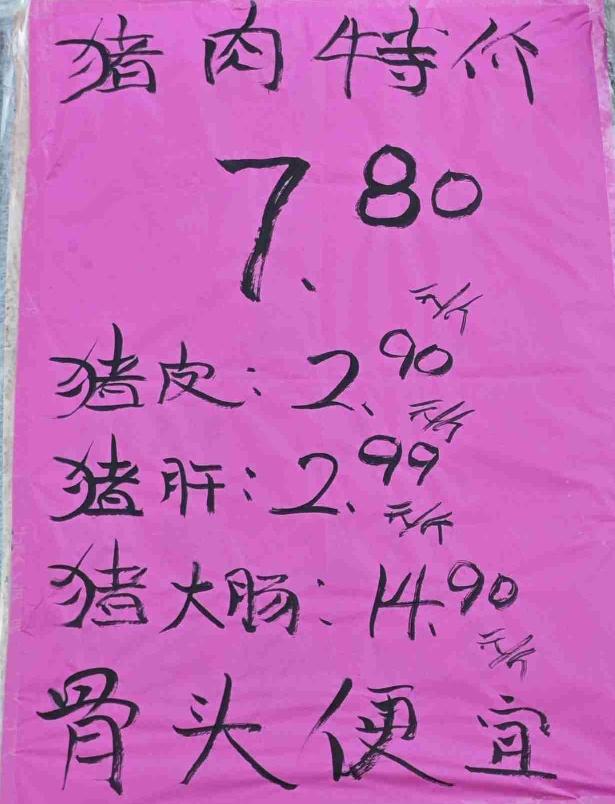 猪肉特价
7.80
元/斤
猪皮：2.90
元/斤
猪肝：2.99
元/斤
猪大肠：14.90
元/斤
骨头便宜